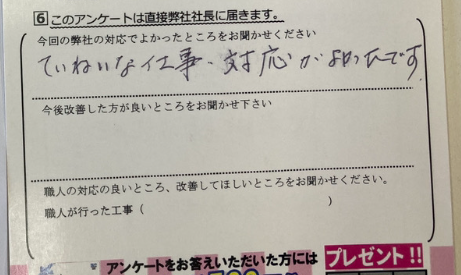 6 このアンケートは直接弊社社長に届きます。
今回の弊社の対応でよかったところをお聞かせください
ていねいな仕事、対応がよかったです
今後改善した方が良いところをお聞かせ下さい
職人の対応の良いところ、改善してほしいところをお聞かせください。
職人が行った工事（ ）
アンケートをお答えいただいた方には プレゼント!!